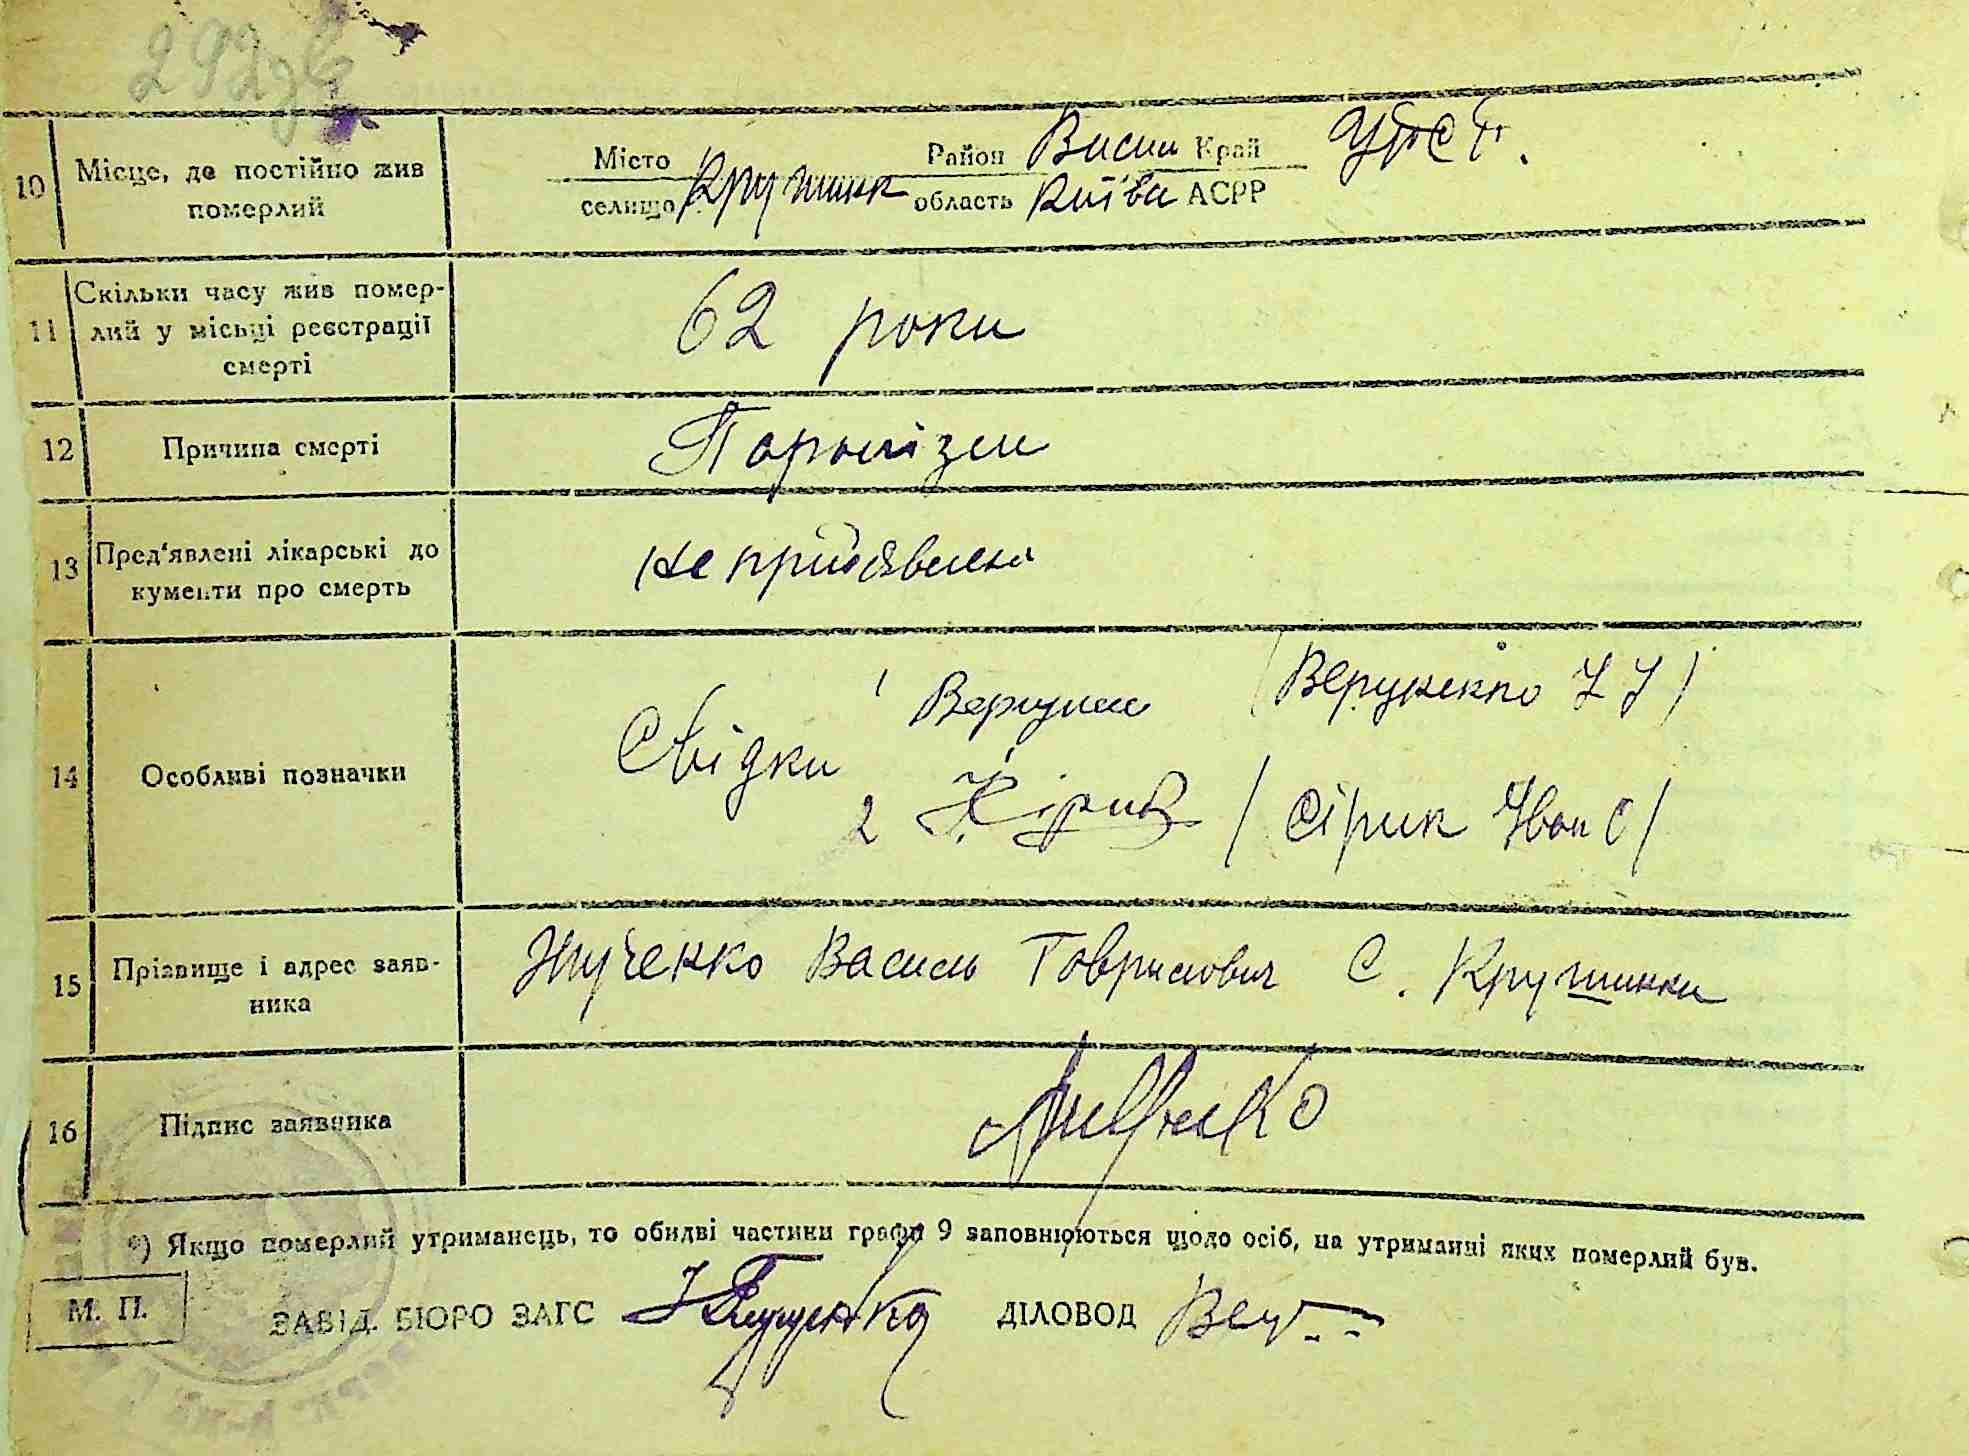 292
10 Місце, де постійно жив померлий
Місто селище Крушинк Район Васил Край УРСР.
область Київ АСРР
11 Скільки часу жив помер-
лий у місьці реєстрації
смерті
62 роки
12 Причина смерті
Паралізм
13 Пред'явлені лікарські до
кументи про смерть
не
14 Особливі позначки
Свідки
1
2 / Сірик Іван С /
15 Прізвище і адрес заяв-
ника
Василь Гаврилович с. Крушинки
16 Підпис заявника
*) Якщо померлий утриманець, то обидві частини графи 9 заповнюються щодо осіб, на утриманні яких померлий був.
М. П.
ЗАВІД. БЮРО ЗАГС ДІЛОВОД